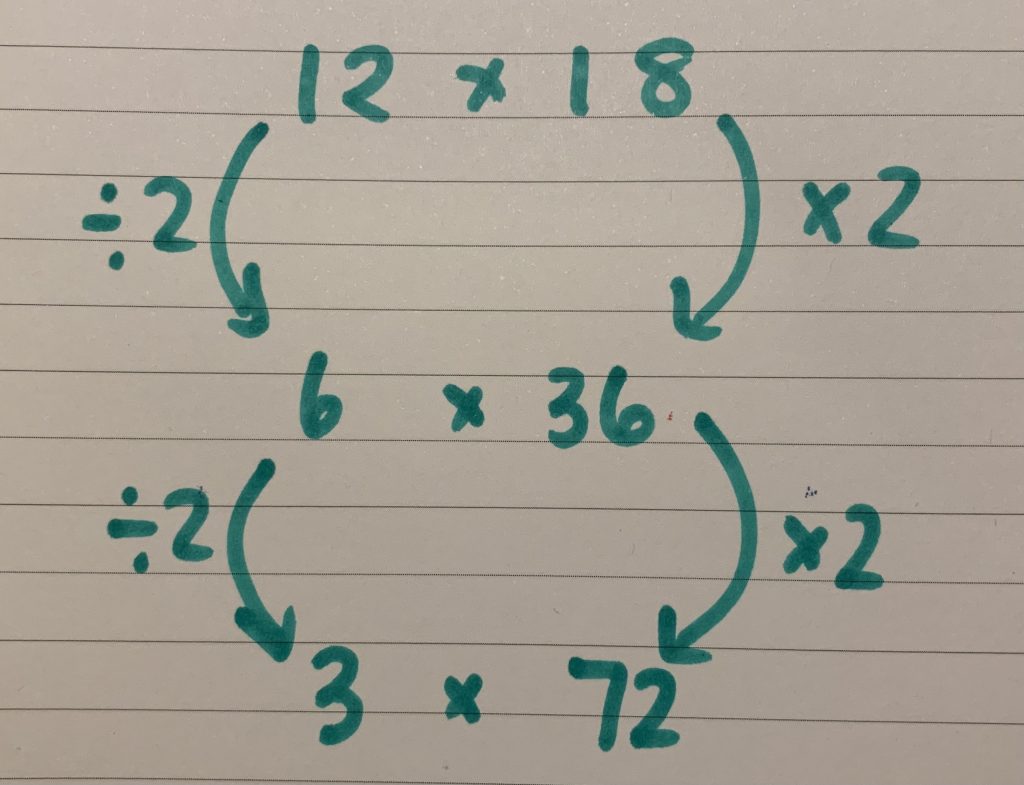 12 × 18
÷2 ×2
6 × 36
÷2 ×2
3 × 72